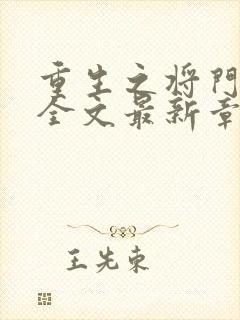 重生之将门
全文最新章
王先东